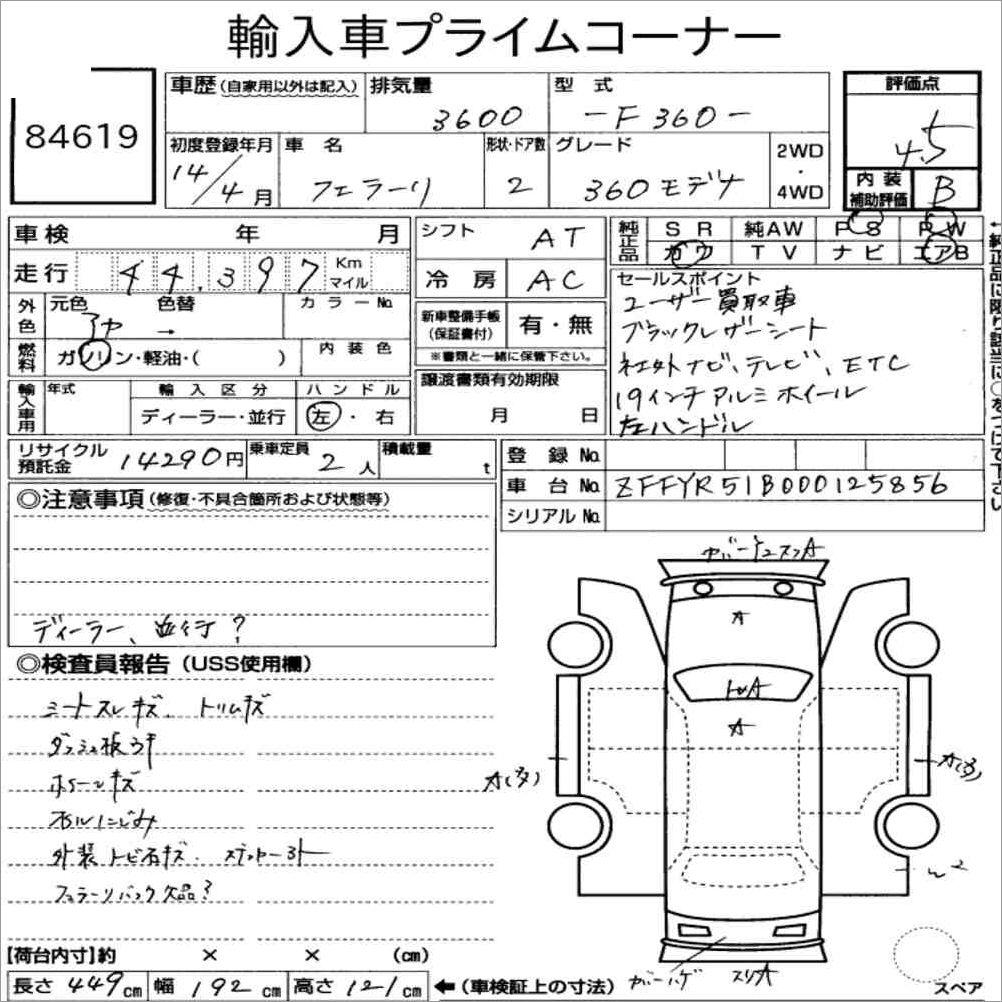 輸入車プライムコーナー
84619
車歴(自家用以外は記入) 排気量 3600 型式 -F360- 評価点 4.5
初度登録年月 14/4月 車名 フェラーリ 形状・ドア数 2 グレード 360モデナ 2WD・4WD 内装補助評価 B
車検 年 月
走行 44,397 Km マイル
外色 元色 色替 → カラーNo
燃料 ガソリン・軽油・( ) 内装色
輸入車用 年式 輸入区分 ディーラー・並行 ハンドル 左・右
シフト AT
冷房 AC
新車整備手帳(保証書付) 有・無
※書類と一緒に保管下さい。
譲渡書類有効期限
月 日
純正品 SR 純AW PS PW
カワ TV ナビ エアB
←純正品に限り該当に○をつけて下さい
セールスポイント
ユーザー買取車
ブラックレザーシート
社外ナビ、テレビ、ETC
19インチアルミホイール
左ハンドル
リサイクル預託金 14290円 乗車定員 2人 積載量 t
登録No
車台No ZFFYR51B000125856
シリアルNo
◎注意事項(修復・不具合箇所および状態等)
ディーラー、並行?
◎検査員報告(USS使用欄)
シートスレキズ、トリムキズ
ダッシュ板ウキ
ホイールキズ
オイルにじみ
外装トビ石キズ、
フェラーリバック欠品?
A
A
A
A(多)
A(多)
スリA
スペア
【荷台内寸】約 × × (cm)
長さ 449cm 幅 192cm 高さ 121cm ←(車検証上の寸法)